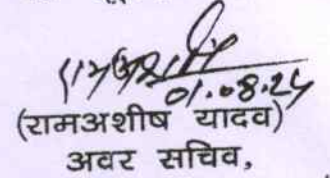 01.08.24
(रामअशीष यादव)
अवर सचिव,